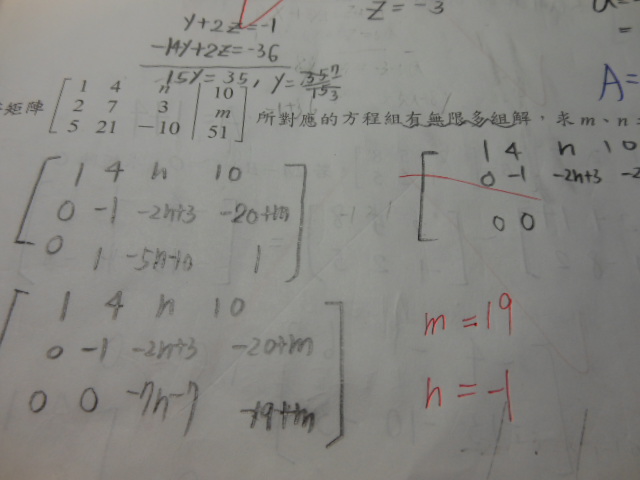 y+2z=-1
z=-3
-14y+2z=-36
15y=35, y=
A=
矩陣 [ 1 4 n | 10
2 7 3 | m
5 21 -10 | 51 ] 所對應的方程組有無限多組解，求m、n
[ 1 4 n 10
0 -1 -2n+3 -20+m
0 1 -5n-10 1 ]
[ 1 4 n 10
0 -1 -2n+3 -2
0 0
[ 1 4 n 10
0 -1 -2n+3 -20+m
0 0 -7n-7 -19+m ]
m=19
n=-1